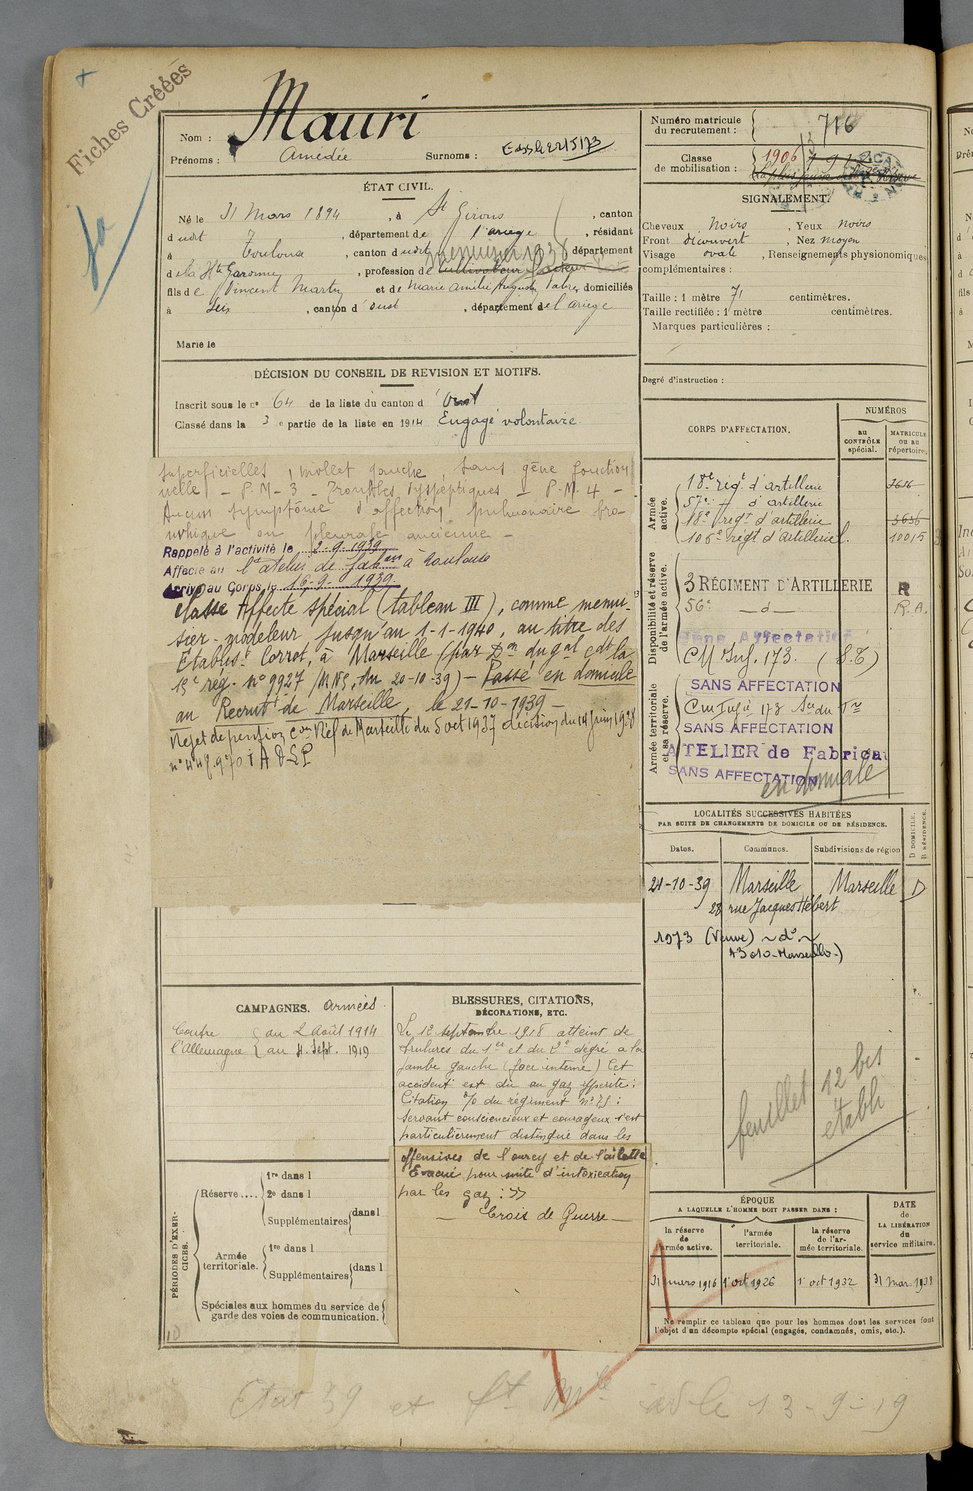 Fiches Créées
Nom : Mauri
Prénoms : Amédée Surnoms :
ÉTAT CIVIL.
Né le 31 Mars 1894, à St Girons, canton
dudit, département de l'ariège, résidant
à Toulouse, canton dudit, département
de la Hte Garonne, profession de cultivateur
fils de Vincent Martin et de Marie Amélie domiciliés
à Seix, canton d'oust, département de l'ariège
Marié le
DÉCISION DU CONSEIL DE REVISION ET MOTIFS.
Inscrit sous le n° 64 de la liste du canton d'Oust
Classé dans la 3e partie de la liste en 1914 Engagé volontaire.
superficielles, mollet gauche sans gêne fonction
nelle - P.M-3 - Troubles dyspeptiques - P.M-4 -
Aucun symptôme d'affection pulmonaire bro
nchique ou pleurale ancienne -
Rappelé à l'activité le 2-9-1939
Affecté au l'atelier de fabon à Toulouse
Arrivé au Corps le 16-9-1939.
Classé Affecté spécial (tableau III), comme menui-
sier-modeleur jusqu'au 1-1-1940, au titre des
Établists Corrot, à Marseille (par Don du gal cdt la
15e rég. n° 9927/MNS, du 20-10-39) - Passé en domicile
au Recrutt de Marseille, le 21-10-1939 -
Rejet de pension Con Réf de Marseille du 5 oct 1937 décision du 14 juin 1938
CAMPAGNES. Armées
Contre du 2 Août 1914
l'Allemagne au 4 Sept. 1919
BLESSURES, CITATIONS,
DÉCORATIONS, ETC.
Le 12 septembre 1918 atteint de
brulures du 1er et du 2e degré a la
jambe gauche (face interne) Cet
accident est dû au gaz ypérite :
Citation % du régiment n° 75 :
servant consciencieux et courageux s'est
particulièrement distingué dans les
offensives de l'ourcq et de l'ailette
Evacué pour suite d'intoxication
par les gaz : »
- Croix de Guerre -
PÉRIODES D'EXERCICES.
Réserve....
1re dans l
2e dans l
Supplémentaires dans l
Armée territoriale.
1re dans l
Supplémentaires dans l
Spéciales aux hommes du service de
garde des voies de communication.
10
Numéro matricule
du recrutement : 716
Classe
de mobilisation : 1906
SIGNALEMENT.
Cheveux Noirs, Yeux noirs
Front découvert, Nez moyen
Visage ovale, Renseignements physionomiques
complémentaires :
Taille : 1 mètre 71 centimètres.
Taille rectifiée : 1 mètre centimètres.
Marques particulières :
Degré d'instruction :
CORPS D'AFFECTATION.
NUMÉROS
au CONTRÔLE spécial.
MATRICULE ou au répertoire.
Armée active.
18e régt d'artillerie
57e d° d'artillerie
18e régt d'artillerie 3636
106e régt d'artillerie l. 10015
Disponibilité et réserve de l'armée active.
3 RÉGIMENT D'ARTILLERIE R
56e -d- R.A.
CM Inf. 173. (S.T)
Armée territoriale et sa réserve.
SANS AFFECTATION
SANS AFFECTATION
ATELIER de Fabricat
SANS AFFECTATION
en domicile
LOCALITÉS SUCCESSIVES HABITÉES
PAR SUITE DE CHANGEMENTS DE DOMICILE OU DE RÉSIDENCE.
Dates. Communes. Subdivisions de région D DOMICILE. R RÉSIDENCE.
21-10-39 Marseille Marseille D
28 rue Jacques Hébert
1973 (Veuve) ~ d° ~
13010-Marseille-)
feuillet 12 bis
établi
ÉPOQUE
A LAQUELLE L'HOMME DOIT PASSER DANS :
la réserve de l'armée active.
l'armée territoriale.
la réserve de l'armée territoriale.
DATE de LA LIBÉRATION du service militaire.
31 mars 1916 1 oct 1926 1 oct 1932 31 mar. 1938
Ne remplir ce tableau que pour les hommes dont les services font
l'objet d'un décompte spécial (engagés, condamnés, omis, etc.).
Etat 39 et ad le 13-9-19